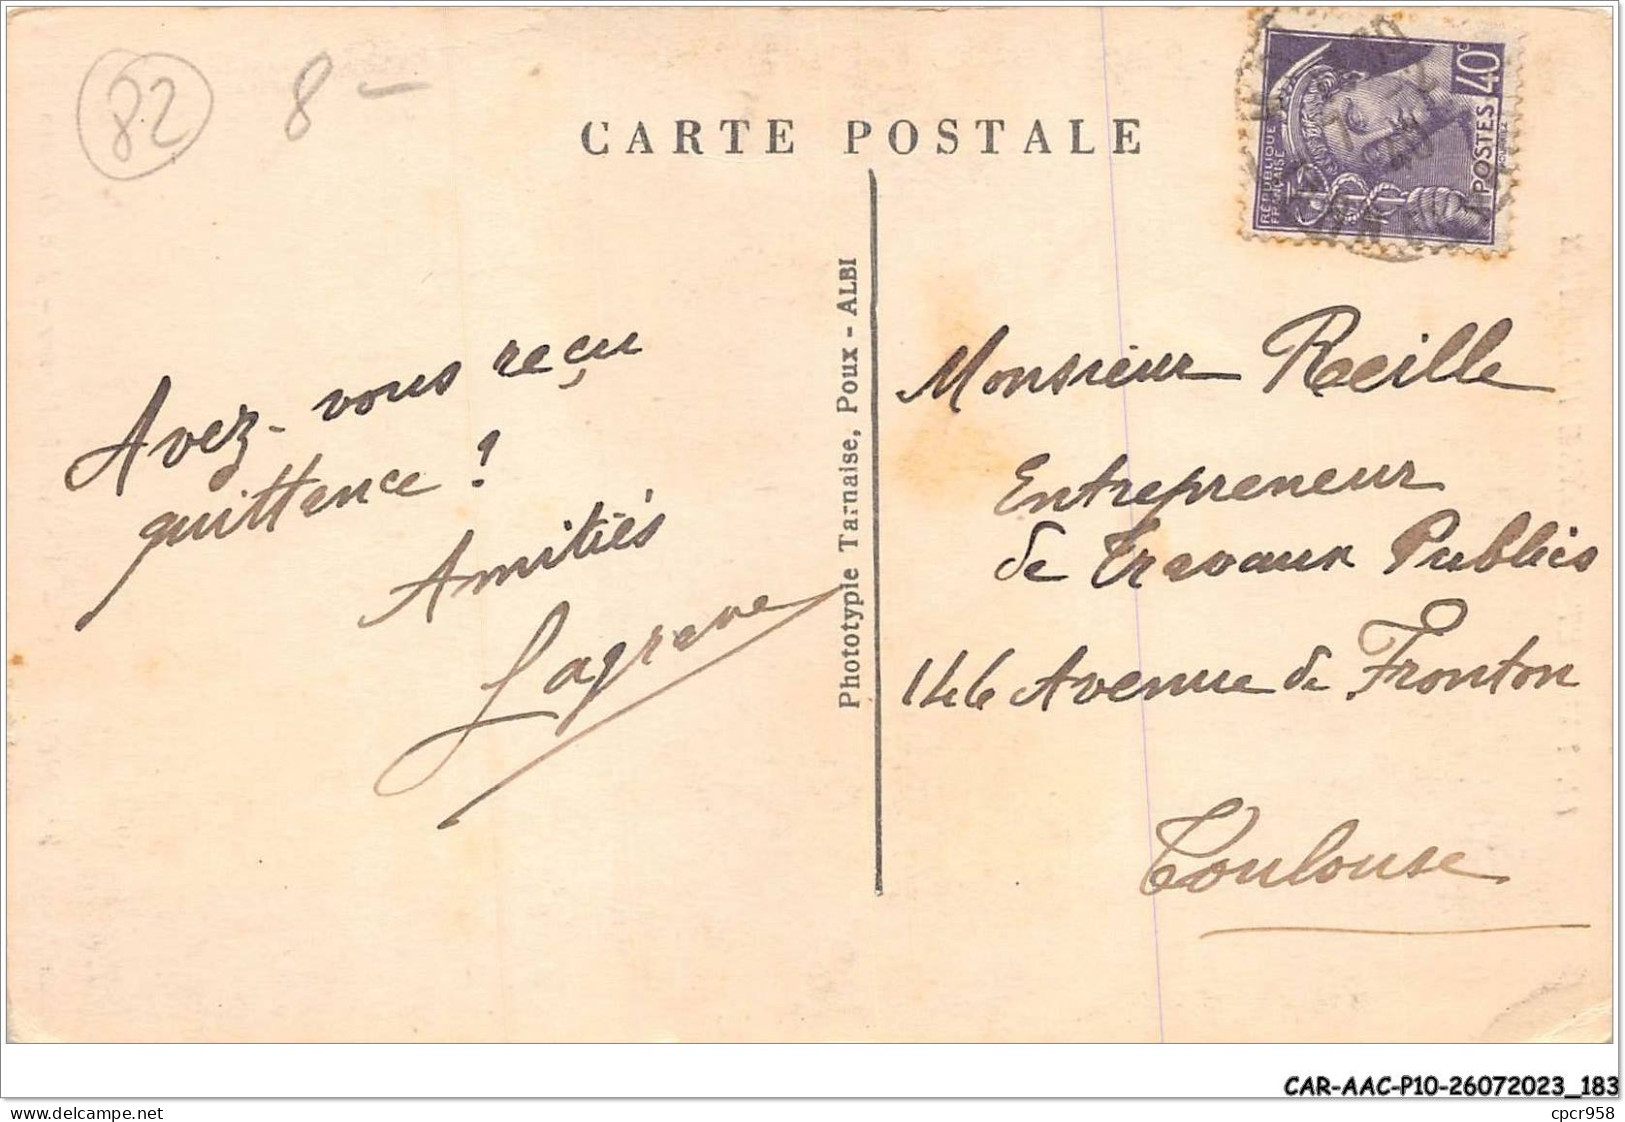 82
8 -
CARTE POSTALE
40c
POSTES
RÉPUBLIQUE
FRANÇAISE
Avez-vous reçu
quittence ?
Amitiés
Lagreve
Phototypie Tarnaise, Poux - ALBI
Monsieur Reille
Entrepreneur
de Travaux Publics
146 Avenue de Fronton
Toulouse
CAR-AAC-P10-26072023_183
delcampe.net
cpcr958